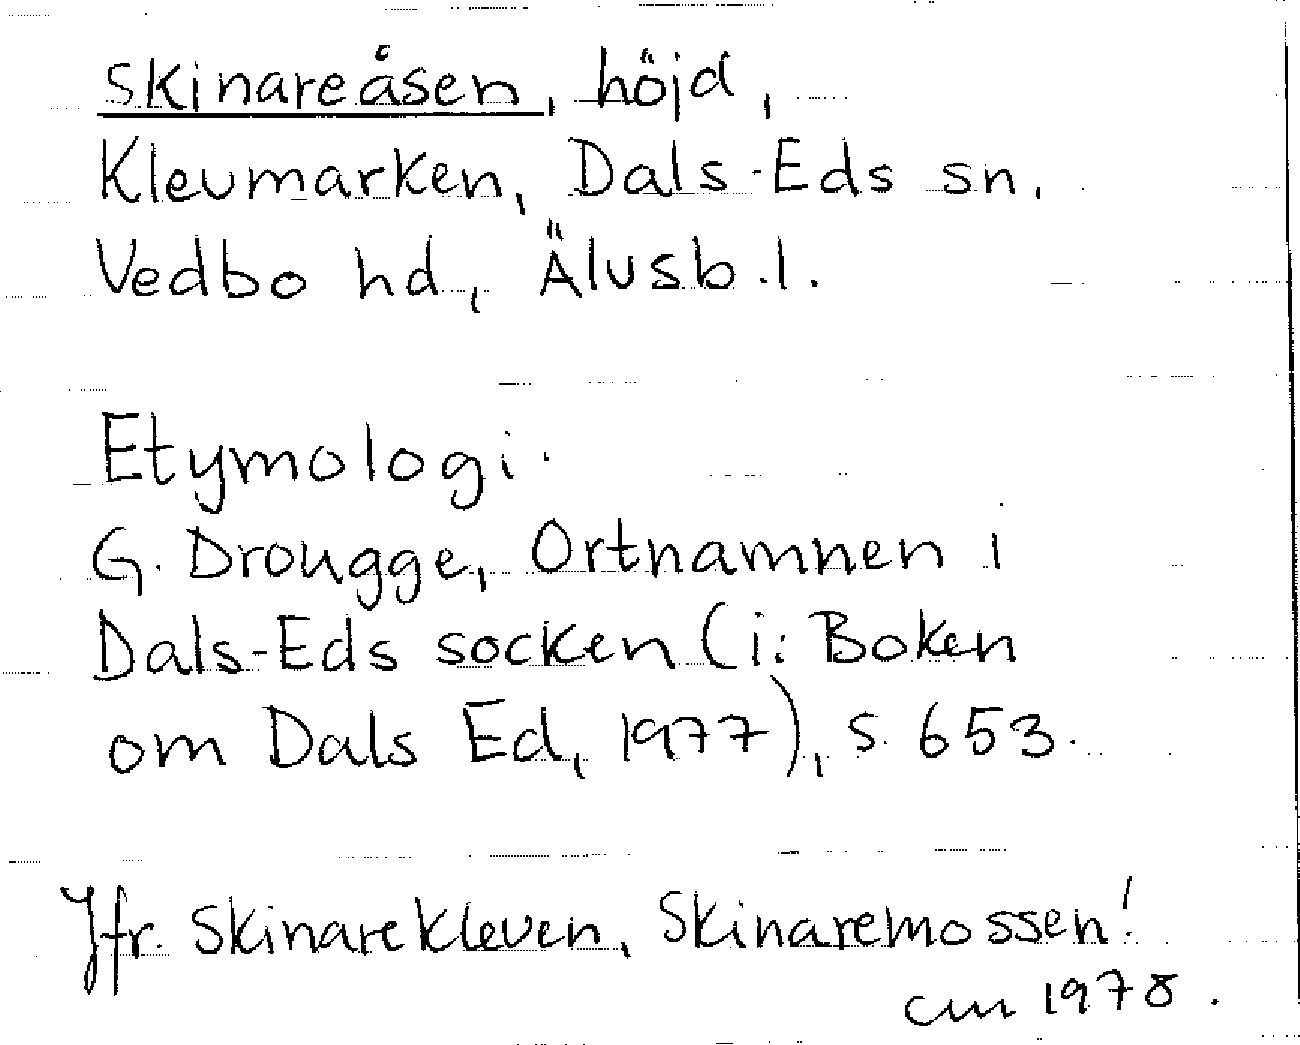 Skinareåsen, höjd,
Klevmarken, Dals-Eds sn.
Vedbo hd, Älvsb.l.
Etymologi.
G. Drougge, Ortnamnen i
Dals-Eds socken (i: Boken
om Dals Ed, 1977), s. 653.
Jfr. Skinarekleven, Skinaremossen!
cm 1978.